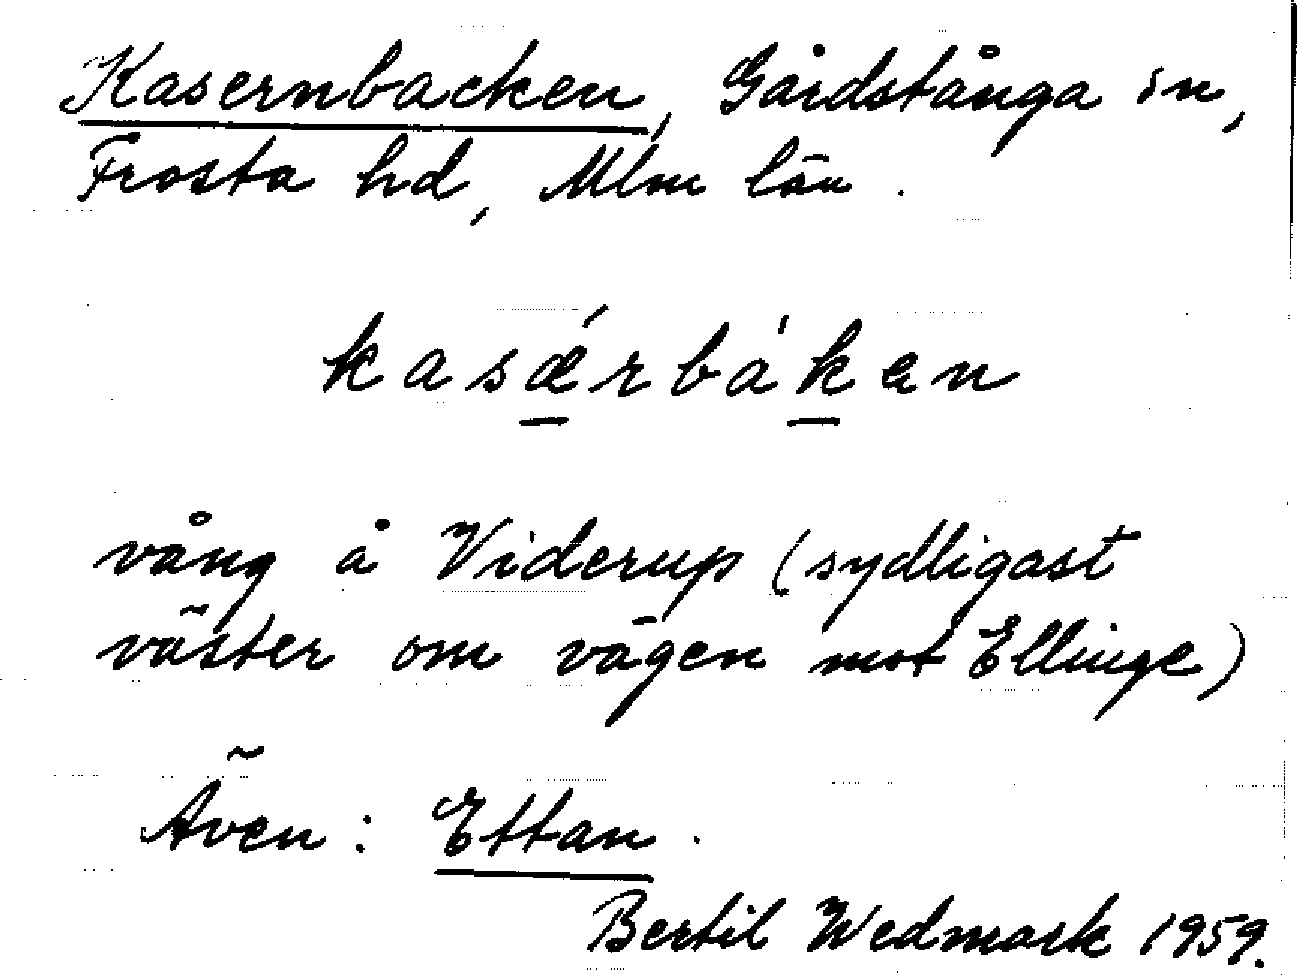 Kasernbacken, Gårdstånga sn,
Frosta hd, Mlm län.
kasǽrbákan
vång å Viderup (sydligast
väster om vägen mot Ellinge)
Även: Ettan.
Bertil Wedmark 1959.